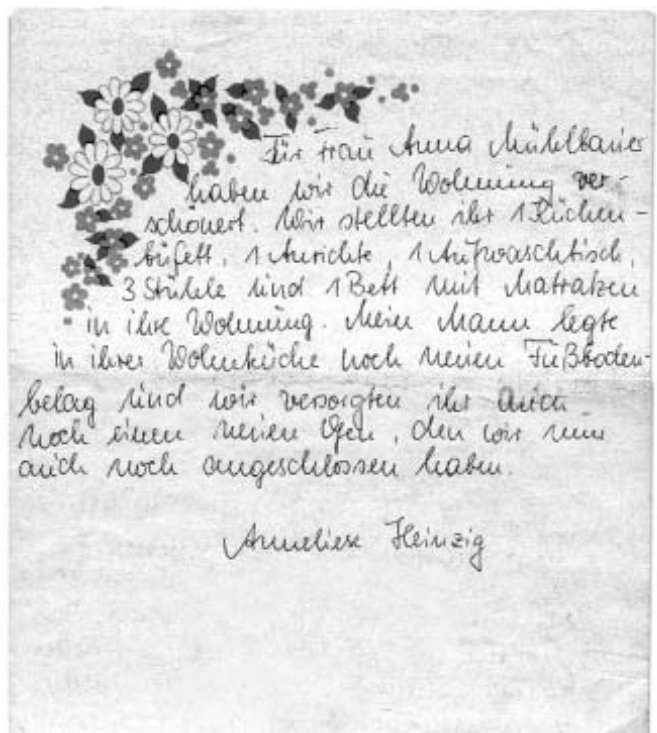 Für Frau Anna Mühlbauer
haben wir die Wohnung ver-
schönert. Wir stellten ihr 1 Küchen-
büfett, 1 Anrichte, 1 Aufwaschtisch,
3 Stühle und 1 Bett mit Matratzen
in ihre Wohnung. Mein Mann legte
in ihrer Wohnküche noch neuen Fußboden-
belag und wir versorgten ihr auch
noch einen neuen Ofen, den wir nun
auch noch angeschlossen haben.
Anneliese Heinzig